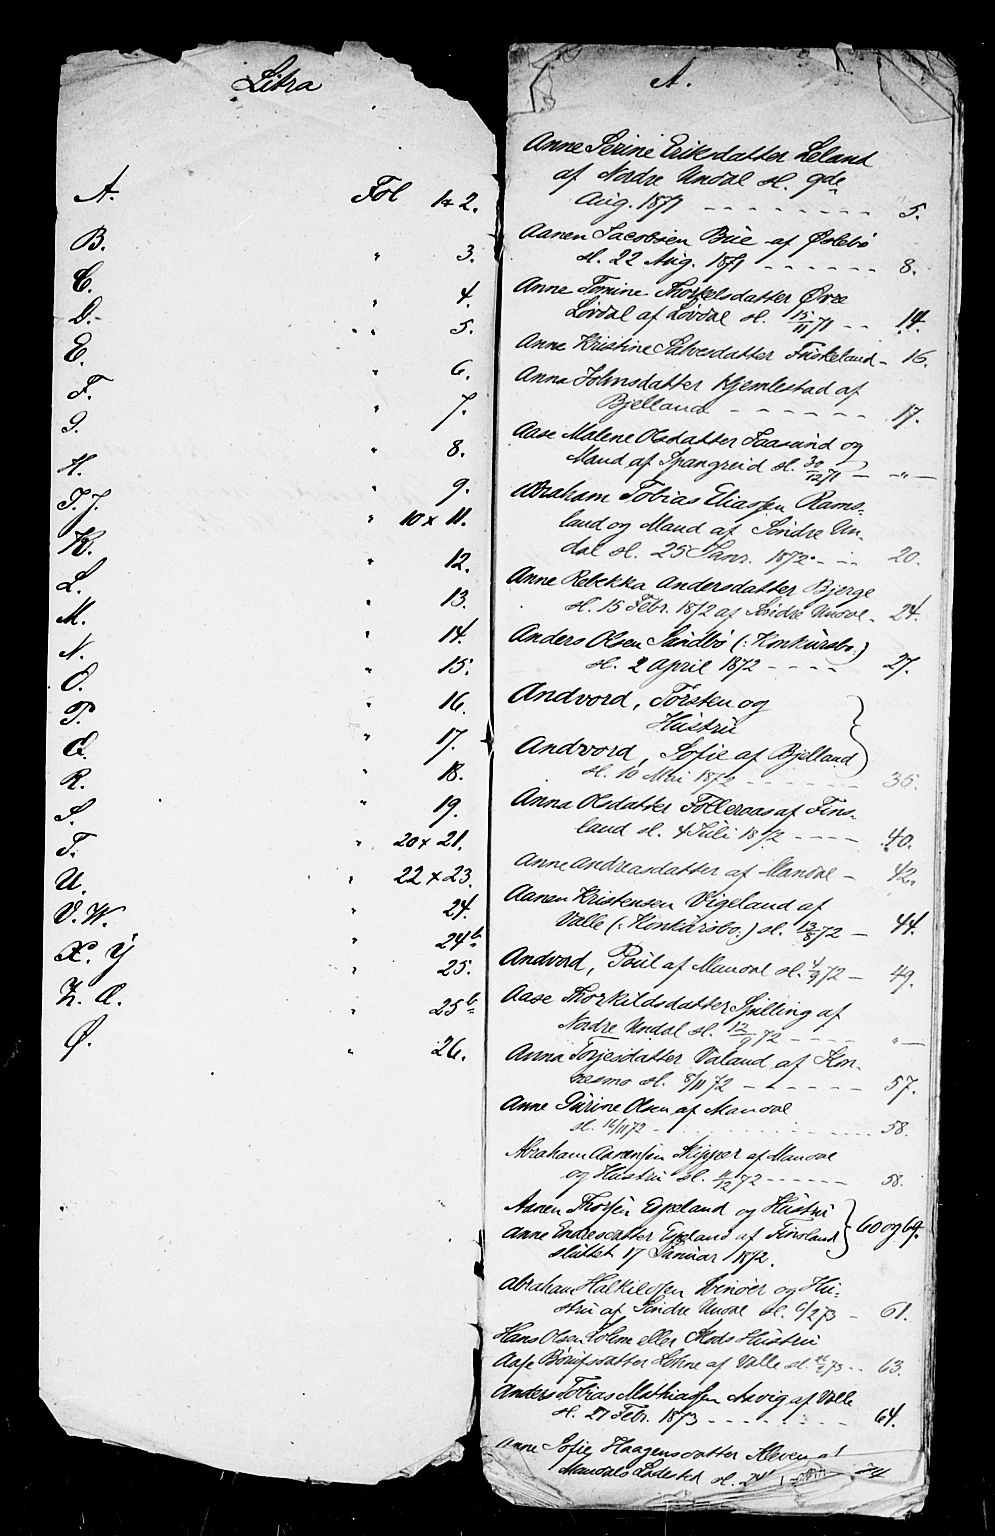 Litra
A. Fol 1 & 2.
B. " 3.
C. " 4.
D. " 5.
E. " 6.
F. " 7.
G. " 8.
H. " 9.
I. J. " 10 & 11.
K. " 12.
L. " 13.
M. " 14.
N. " 15.
O. " 16.
P. " 17.
Q. " 18.
R. " 19.
S. " 20 & 21.
T. " 22 & 23.
U. " 24.
V. W. " 24b
X. Y " 25.
Z. Æ. " 25b
Ø. " 26.
A.
Anne Serine Eriksdatter Leland
af Nordre Undal sl. 9de
Aug. 1871 - - - - - - - - 5.
Aanen Jacobsen Büe af Øslebø
sl. 22 Aug. 1871 - - - - - - 8.
Anne Tomine Thorkelsdatter Øvre
Løvdal af Løvdal sl. 15/11 71 - - 14.
Anne Kristine Salvesdatter Fuskeland - 16.
Anna Johnsdatter Hjemlestad af
Bjelland - - - - - - - 17.
Aase Malene Olsdatter Faasund og
Mand af Spangreid sl. 30/12 71 — —"—
Abraham Tobias Eliassen Rams-
land og Mand af Søndre Un-
dal sl. 25 Janr. 1872 - - - 20.
Anne Rebekka Andersdatter Bjerge
sl. 15 Febr. 1872 af Søndre Undal - 24.
Anders Olsen Sandbø (: Konkürsbo :)
sl. 2 April 1872 - - - - 27.
Andvord, Torsten og
Hüstrü
Andvord, Sofie af Bjelland
sl. 10 Mai 1872 - - - - - - 35.
Anna Olsdatter Folleraas af Fins-
land sl. 4 Jüli 1872 - - - - 40.
Anne Andreasdatter af Mandal - 42.
Aanen Kristensen Vigeland af
Valle (: Konkürsbo :) sl. 13/8 72 — 44.
Andvord, Poül af Mandal sl. 4/9 72 — 49.
Aase Thorkildsdatter Spilling af
Nordre Undal sl. 12/9 72 - - - - " —
Anna Torjesdatter Valand af Kon-
nesmo sl. 8/11 72 - - - - - - 57.
Anne Gürine Olsen af Mandal
sl. 16/11 72 - - - - - - 58.
Abraham Aanensen Skipper af Mandal
og Hustrü sl. 11/12 72 - - - - - - 58.
Aanen Thorsen Egeland og Hüstrü
Anne Endresdatter Egeland af Finsland 60 og 69.
slüttet 17 Januar 1872.
Abraham Halkildsen Svinøer og Hü-
strü af Søndre Undal sl. 6/2 73 - 61.
Hans Olsen Lohne eller Hüstrü
Aase Børüfsdatter Lohne af Valle sl. 73 - - 63.
Anders Tobias Mathiassen Aavig af Valle
sl. 27 Febr. 1873 - - - - - - - - 64.
Anne Sofie Haagensdatter Kleven af
Mandals Ladested sl.